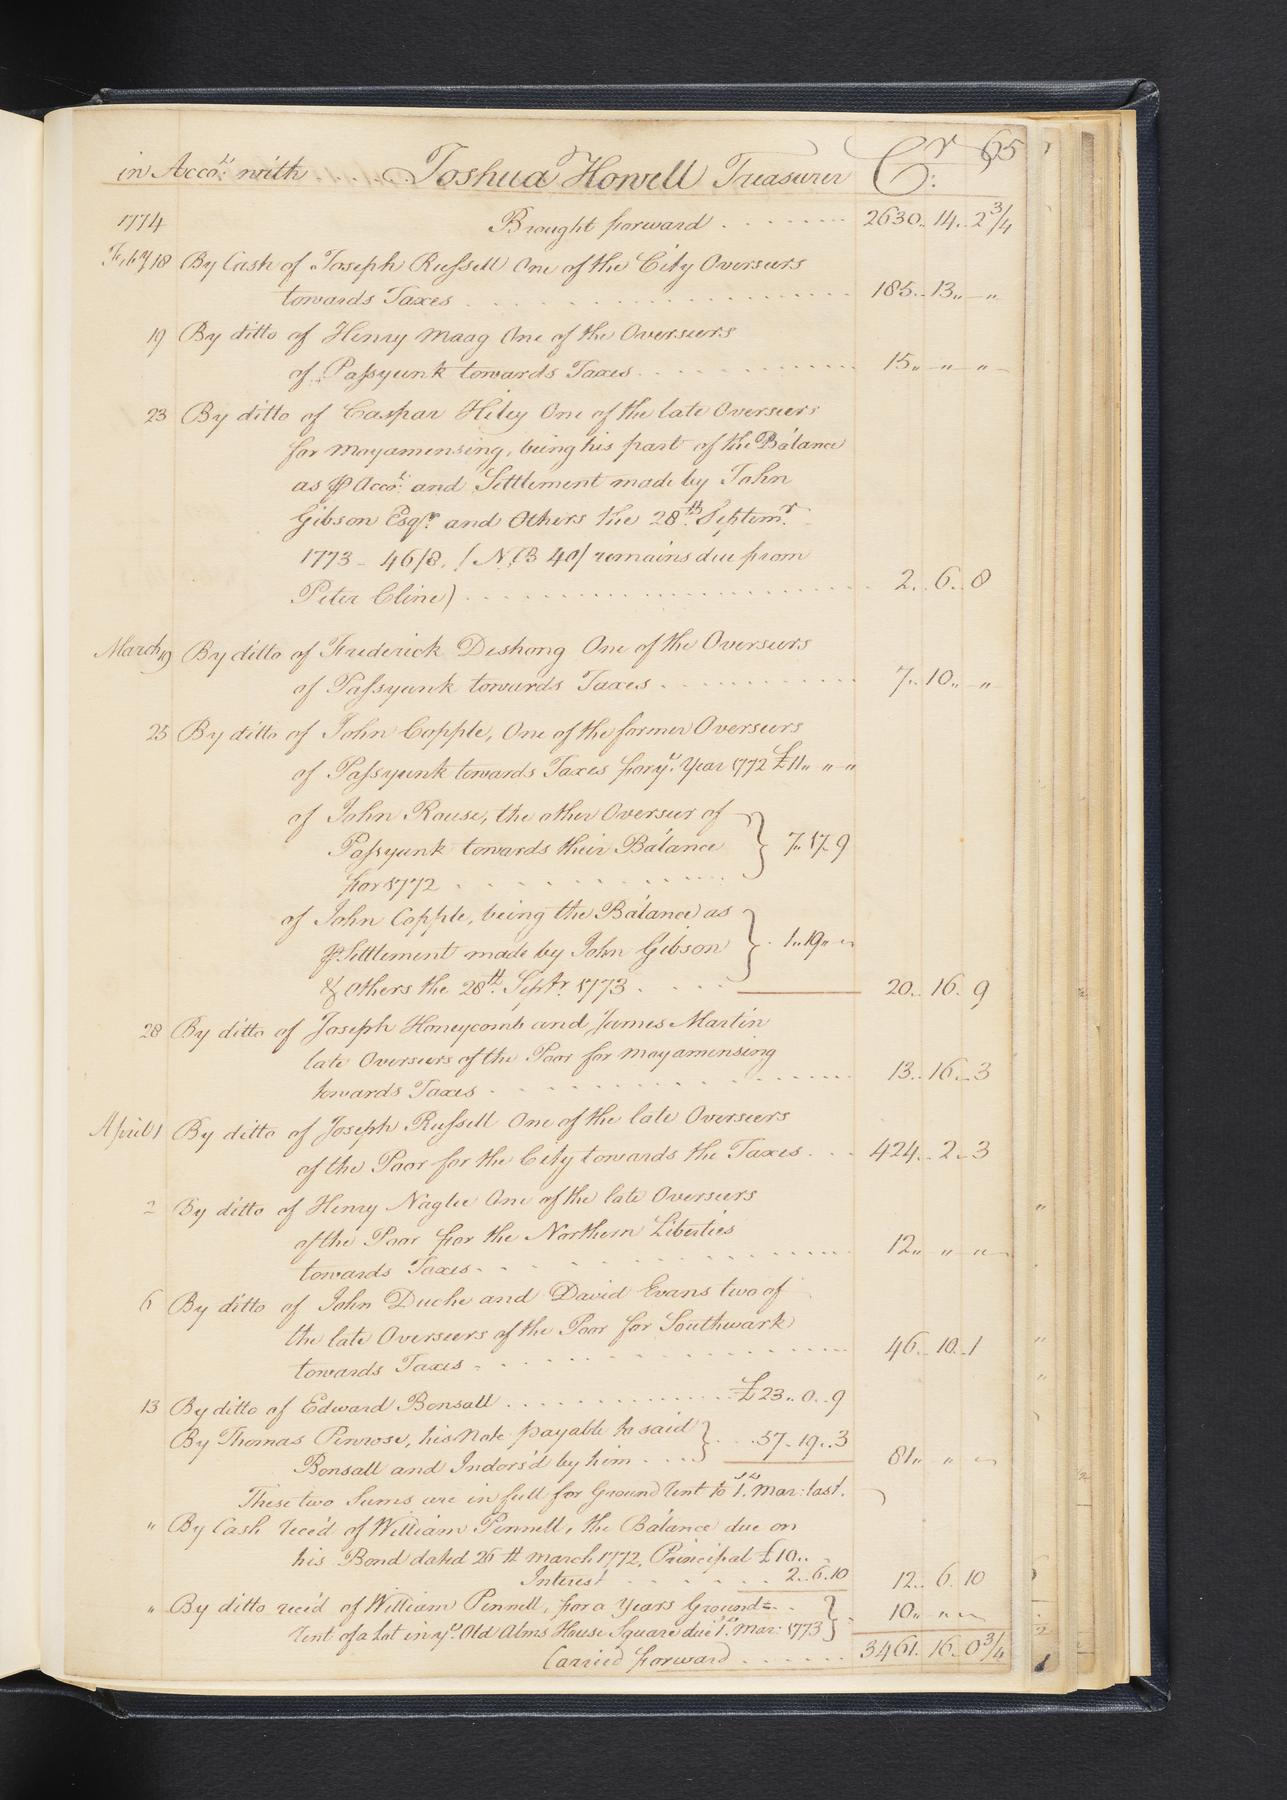 65
in Accot. with Joshua Howell Treasurer Cr.
1774 Brought forward 2630.. 14.. 2 3/4
Feby 18 By Cash of Joseph Russell One of the City Overseers
towards Taxes 185.. 13.. "
19 By ditto of Henry Maag One of the Overseers
of Passyunk towards Taxes 15.. " "
23 By ditto of Caspar Hiley One of the late Overseers
for Moyamensing, being his part of the Balance
as ⅌ Accot. and Settlement made by John
Gibson Esqr. and Others the 28th. Septemr.
1773 - 46/8. (N.B 40/ remains due from
Peter Cline) 2.. 6.. 8
March 19 By ditto of Frederick Deshong One of the Overseers
of Passyunk towards Taxes 7.. 10.. "
25 By ditto of John Copple, One of the former Overseers
of Passyunk towards Taxes for ye. Year 1772 £11.. " "
of John Rouse, the other Overseer of
Passyunk towards their Balance 7.. 17.. 9
for 1772
of John Copple, being the Balance as
⅌ Settlement made by John Gibson 1.. 19.. "
& others the 28th. Septr. 1773 20.. 16.. 9
28 By ditto of Joseph Honeycomb and James Martin
late Overseers of the Poor for Moyamensing
towards Taxes 13.. 16.. 3
April 1 By ditto of Joseph Russell One of the late Overseers
of the Poor for the City towards the Taxes 424.. 2.. 3
2 By ditto of Henry Naglee One of the late Overseers
of the Poor for the Northern Liberties
towards Taxes 12.. " "
6 By ditto of John Duche and David Evans two of
the late Overseers of the Poor for Southwark
towards Taxes 46.. 10.. 1
13 By ditto of Edward Bonsall £23.. 0.. 9
By Thomas Penrose, his Note payable to said
Bonsall and Indors'd by him 57.. 19.. 3 81.. " "
These two Sums are in full for Ground Rent to 1st. Mar: last.
" By Cash rece'd of William Pennell, the Balance due on
his Bond dated 26th March 1772. Principal £10..
Interest 2.. 6.. 10 12.. 6.. 10
" By ditto rece'd of William Pennell, for a Years Ground=
Rent of a Lot in ye. Old Alms House Square due 1st. Mar: 1773 10.. " "
Carried forward 3461.. 16.. 0 3/4